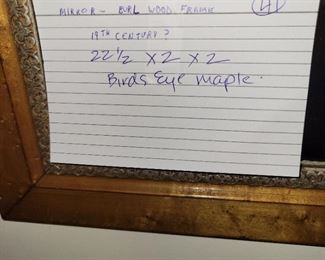 MIRROR - BURL WOOD FRAME
41
19TH CENTURY?
22 1/2 x 2 x 2
Birds Eye maple.